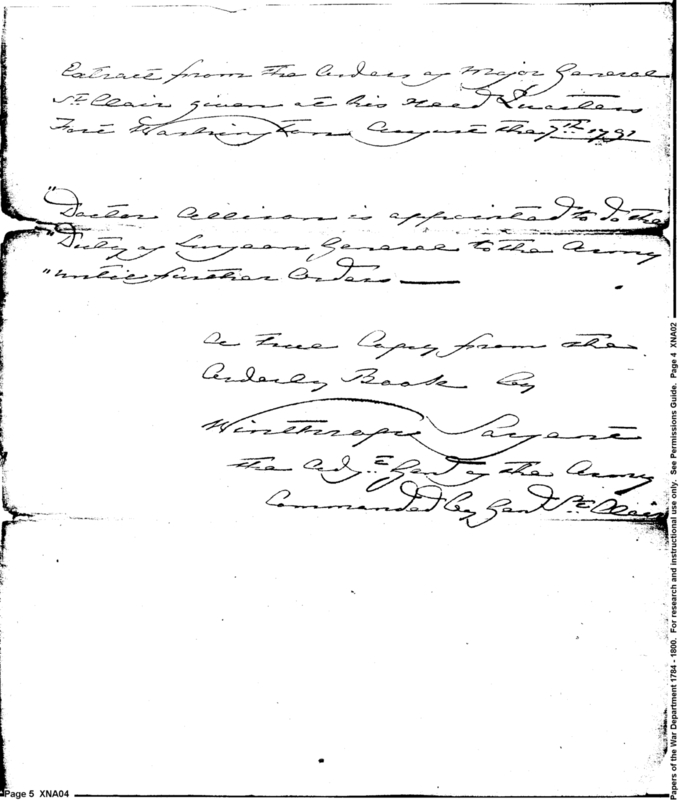 Extract from the Orders of Major General
St. Clair given at his Head Quarters
Fort Washington August the 7th. 1791
"Doctor Allison is appointed to do the
"Duty of Surgeon General to the Army
"until further Orders —
a true Copy from the
Orderly Book by
Winthrop Sargent
the Adjt. Genl. of the Army
Commanded by Genl. St. Clair
Page 5 XNA04
Papers of the War Department 1784 - 1800. For research and instructional use only. See Permissions Guide. Page 4 XNA02